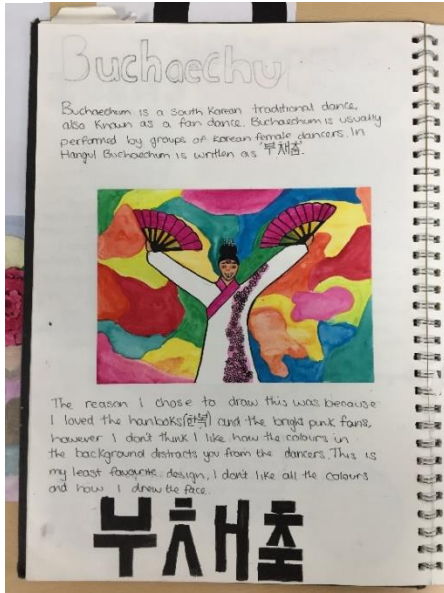 Buchaechu
Buchaechum is a South Korean traditional dance,
also known as a fan dance. Buchaechum is usually
performed by groups of Korean female dancers. In
Hangul Buchaechum is written as '부채춤'.
The reason I chose to draw this was because
I loved the hanboks(한복) and the bright pink fans,
however I don't think I like how the colours in
the background distracts you from the dancers. This is
my least favourite design, I don't like all the colours
and how I drew the face.
부채춤